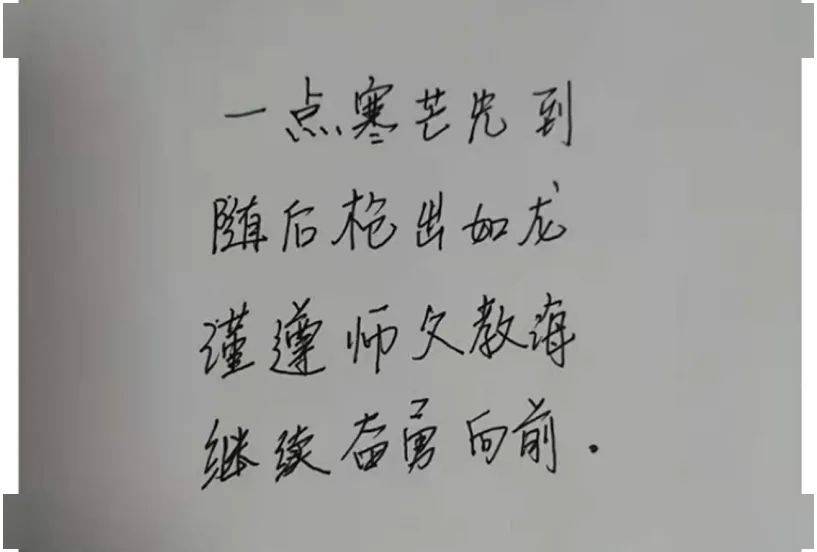 一点寒芒先到
随后枪出如龙
谨遵师父教诲
继续奋勇向前.